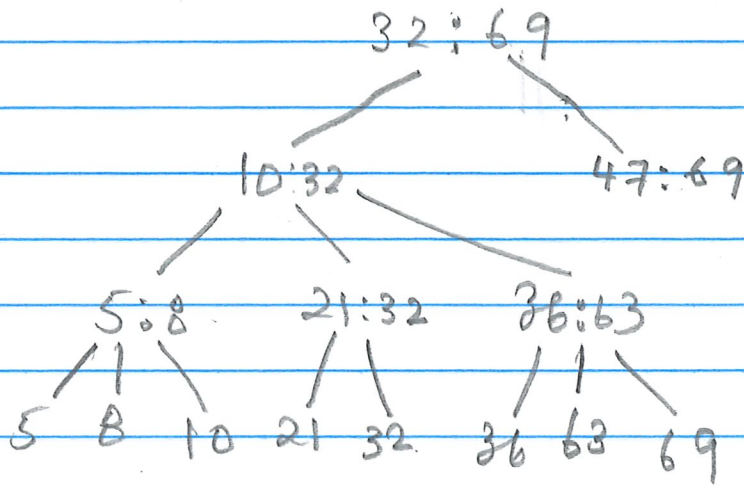 32:69
10:32 47:69
5:8 21:32 36:63
5 8 10 21 32 36 63 69